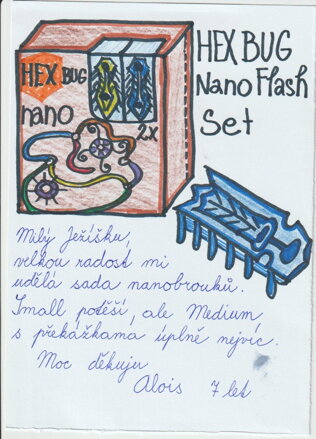 HEX BUG
Nano Flash
Set
HEX BUG
nano
2x
Milý Ježíšku,
velkou radost mi
udělá sada nanobrouků.
Small potěší, ale Medium
s překážkama úplně nejvíc.
Moc děkuju
Alois 7 let